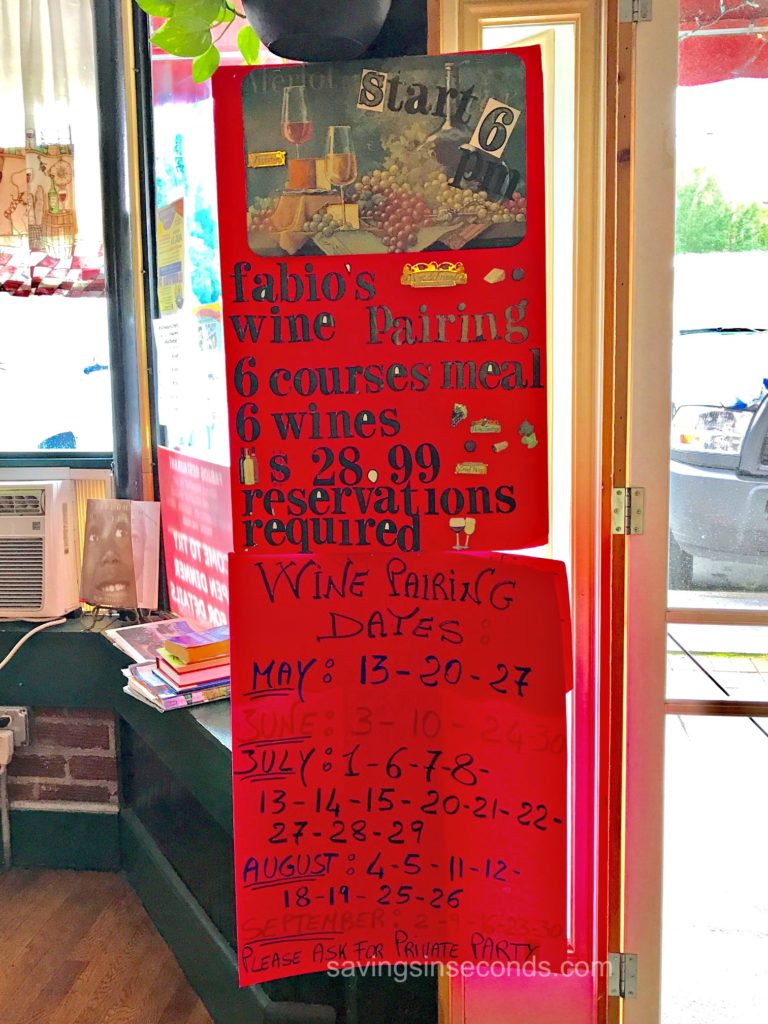 Merlot
start
6
pm
fabio's
wine Pairing
6 courses meal
6 wines
$ 28.99
reservations
required
WINE PAIRING
DATES:
MAY: 13-20-27
JUNE: 3-10-24-30
JULY: 1-6-7-8-
13-14-15-20-21-22-
27-28-29
AUGUST: 4-5-11-12-
18-19-25-26
SEPTEMBER: 2-9-16-23-30
PLEASE ASK FOR PRIVATE PARTY
OME TO TRY
PEN DINNER
FOR DETAILS
savingsinseconds.com